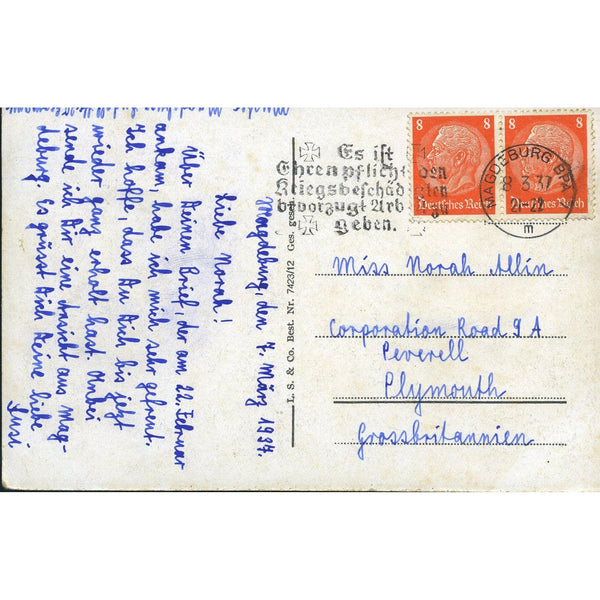 Magdeburg, den 7. März 1937.
Liebe Norah!
Über Deinen Brief, der am 22. Februar
ankam, habe ich mich sehr gefreut.
Ich hoffe, dass Du Dich bis jetzt
wieder ganz erholt hast. Anbei
sende ich Dir eine Ansicht aus Mag-
deburg. Es grüsst Dich Deine liebe
Susi
L. S. & Co. Best. Nr. 7423/12 Ges. gesch.
Es ist
Ehrenpflicht, den
Kriegsbeschäd
bevorzugt Arb
geben.
8 8
Deutsches Reich Deutsches Reich
MAGDEBURG BPA
8.3.37
m
Miss Norah Allin
Corporation Road 9 A
Peverell
Plymouth
Grossbritannien